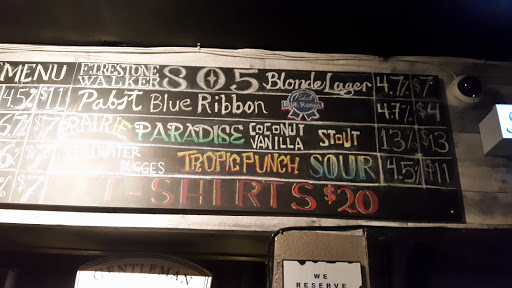 MENU
FIRESTONE WALKER 805 Blonde Lager 4.7% $7
4.5% $11 Pabst Blue Ribbon 4.7% $4
$7 PRAIRIE PARADISE COCONUT VANILLA STOUT 13% $13
$7 TROPIC PUNCH SOUR 4.5% $11
% $7 T-SHIRTS $20
GENTLEMAN
WE
RESERVE